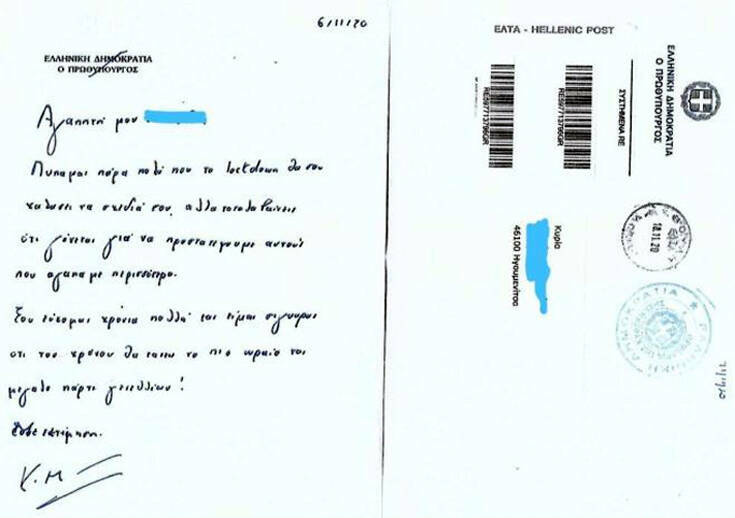 6/11/20
ΕΛΛΗΝΙΚΗ ΔΗΜΟΚΡΑΤΙΑ
Ο ΠΡΩΘΥΠΟΥΡΓΟΣ
Αγαπητή μου
Λυπαμαι πάρα πολύ που το lockdown θα σου
χαλασει τα σχεδιά σου, αλλα καταλαβαινεις
ότι γίνεται γιά να προστατεψουμε αυτούς
που αγαπαμε περισσότερο.
Σου εύχομαι χρόνια πολλά και είμαι σιγουρος
οτι του χρόνου θα κανεις το πιο ωραίο και
μεγαλο πάρτι γενεθλίων!
Με εκτίμηση.
Κ.Μ
ΕΛΤΑ - HELLENIC POST
ΕΛΛΗΝΙΚΗ ΔΗΜΟΚΡΑΤΙΑ
Ο ΠΡΩΘΥΠΟΥΡΓΟΣ
ΣΥΣΤΗΜΕΝΑ RE
RE597713796GR
RE597713796GR
Κυρία
46100 Ηγουμενίτσα
18.11.20